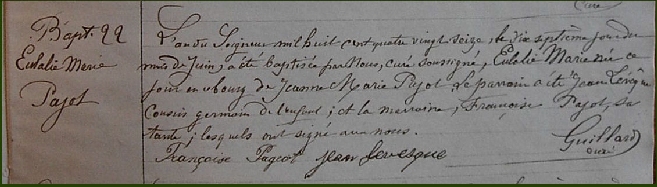 Curé
Bapt. 22
Eulalie Marie
Pajot
L'an du Seigneur mil huit cent quatre vingt seize, le dix septième jour du
mois de Juin, a été baptisée par Nous, curé soussigné, Eulalie Marie née ce
jour en ce bourg de Jeanne Marie Pajot. Le parrain a été Jean Levesque
Cousin germain de l'enfant; et la marraine, Françoise Pajot, sa
tante; lesquels ont signé avec nous.
Françoise Pageot Jean Levesque
Guillard
curé